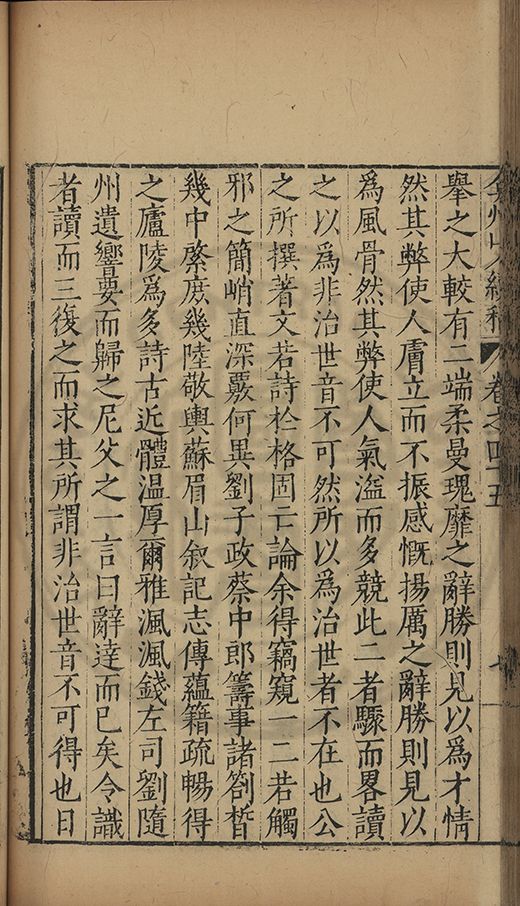 弇州山人續稿 卷之四十五 七
舉之大較有二端柔曼瑰靡之辭勝則見以爲才情
然其弊使人膚立而不振感慨揚厲之辭勝則見以
爲風骨然其弊使人氣溢而多競此二者驟而畧讀
之以爲非治世音不可然所以爲治世者不在也公
之所撰著文若詩於格固亡論余得竊窺一二若觸
邪之簡峭直深覈何異劉子政蔡中郎籌事諸劄晢
幾中綮庶幾陸敬輿蘇眉山叙記志傳蘊籍疏暢得
之廬陵爲多詩古近體溫厚爾雅渢渢錢左司劉隨
州遺響要而歸之尼父之一言曰辭達而已矣令識
者讀而三復之而求其所謂非治世音不可得也日